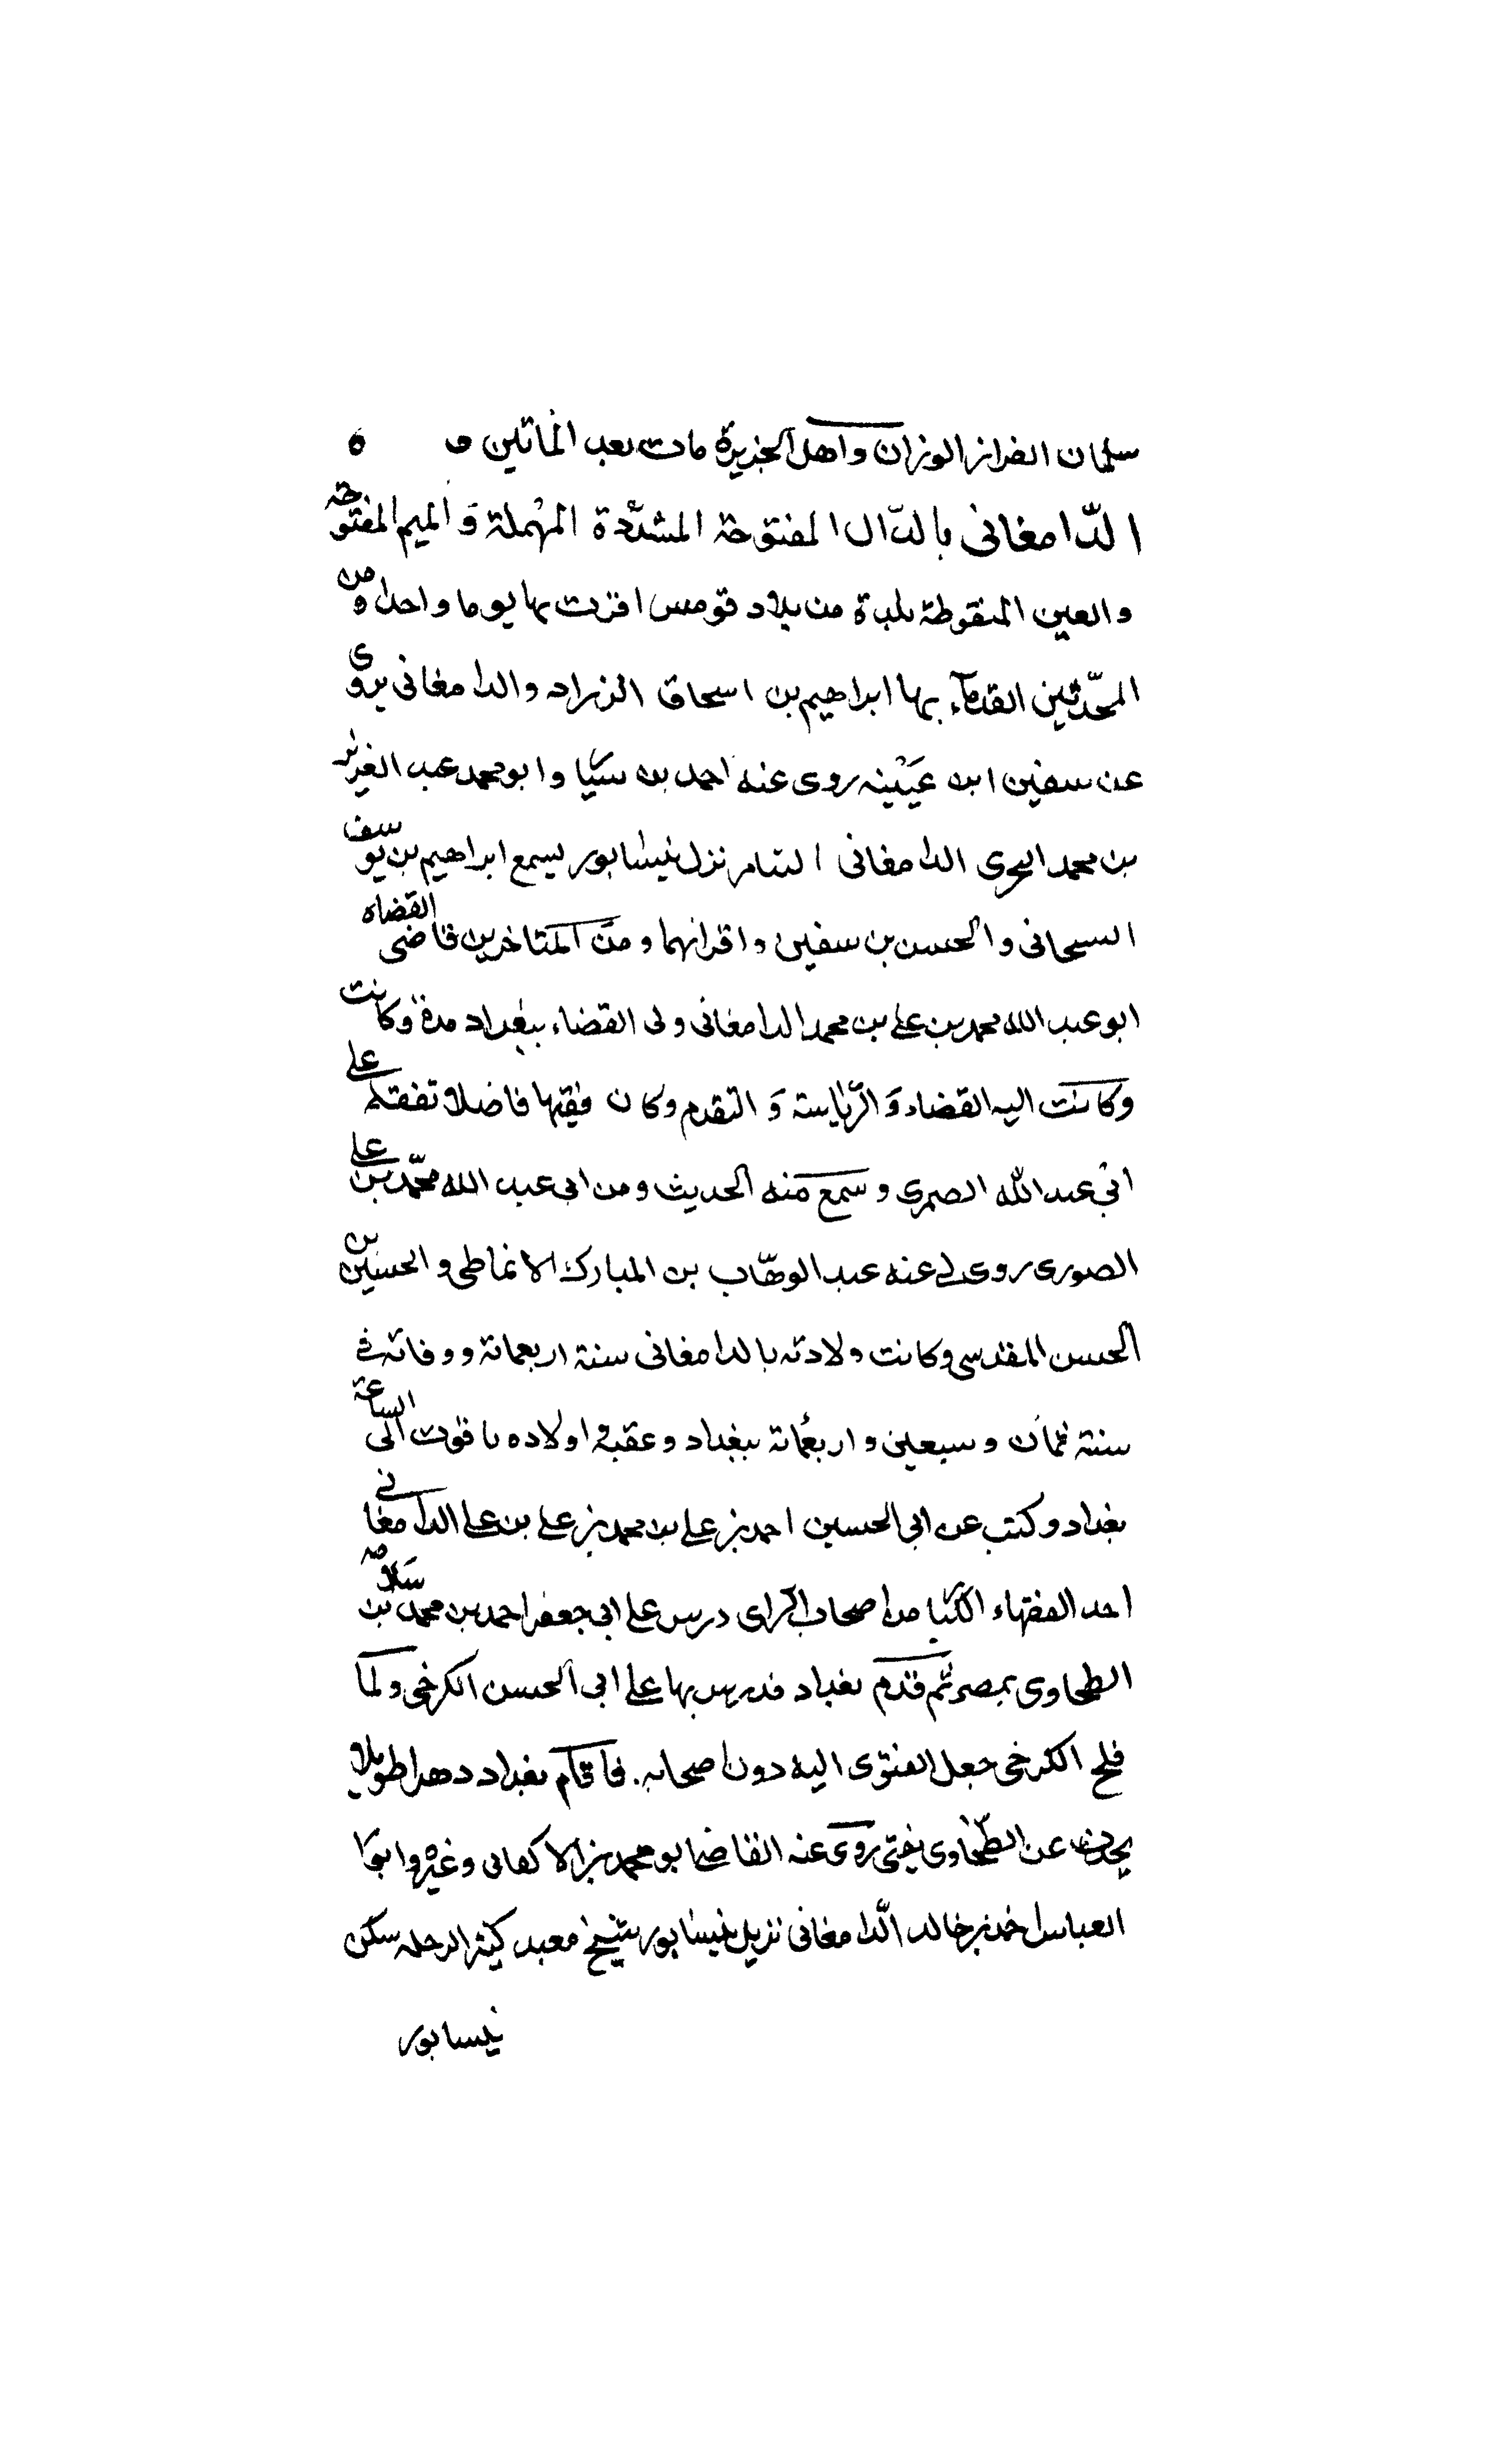 سلمان الفزاز الوزان واهل الجزيرة مات بعد الماتين ه
الدّامغانى بالدّال المفتوحة المشدّدة المهملة وَ الميم المفتوحة
والعين المنقوطة بلدة من بلاد قومس اقمت بها يوما واحدا ومن
المحّدثين القدمآء بها ابراهيم بن اسحاق الزراد والدامغانى يروى
عن سفين ابن عيَيْنه روى عنه احمد بن سيا وابو محمد عبد العزيز
بن محمد البحرى الدامغانى نزل نيسابور يسمع ابراهيم بن يوسف
السيحانى والحسن بن سفين واقرانهما ومن المتاخرين قاضى القضاه
ابو عبد الله محمد بن على بن محمد الدامغانى ولى القضاء ببغداد مدة وكانت
وكانت اليه القضاء وَ الرّياسة وَ التقدم وكان فقيها فاضلا تفقه على
ابى عبد الله الصمرى وسمع منه الحديث ومن ابى عبد الله محمّد بن على
الصورى روى لى عنه عبد الوهّاب بن المبارك الانماطى والحسين بن
الحسن المقدسى وكانت ولادته بالدامغانى سنة اربعماتة ووفاته فى
سنة ثمان وسبعين واربعماتة ببغداد وعقبه واولاده باقون الى الساعة
بغداد وكتب عن ابى الحسين احمد بن على بن محمد بن على بن على الدامغانى
احد الفقهاء الكبا من اصحاب الراى درس على ابى جعفر احمد بن محمد بن سلامه
الطحاوى بمصر ثم قدم بغداد فدرس بها على ابى الحسن الكرخى ولما
فلج الكرخى جعل الفتوى اليه دون اصحابه. فاقام بغداد دهرا طويلا
يحدث عن الطّحاوى يفتى روى عنه القاضى ابو محمد بن الاكفانى وغيره وابو
العباس احمد بن خالد الدّامغانى نزيل نيسابور شيخ معبد كثير الرحله سكن
نيسابور